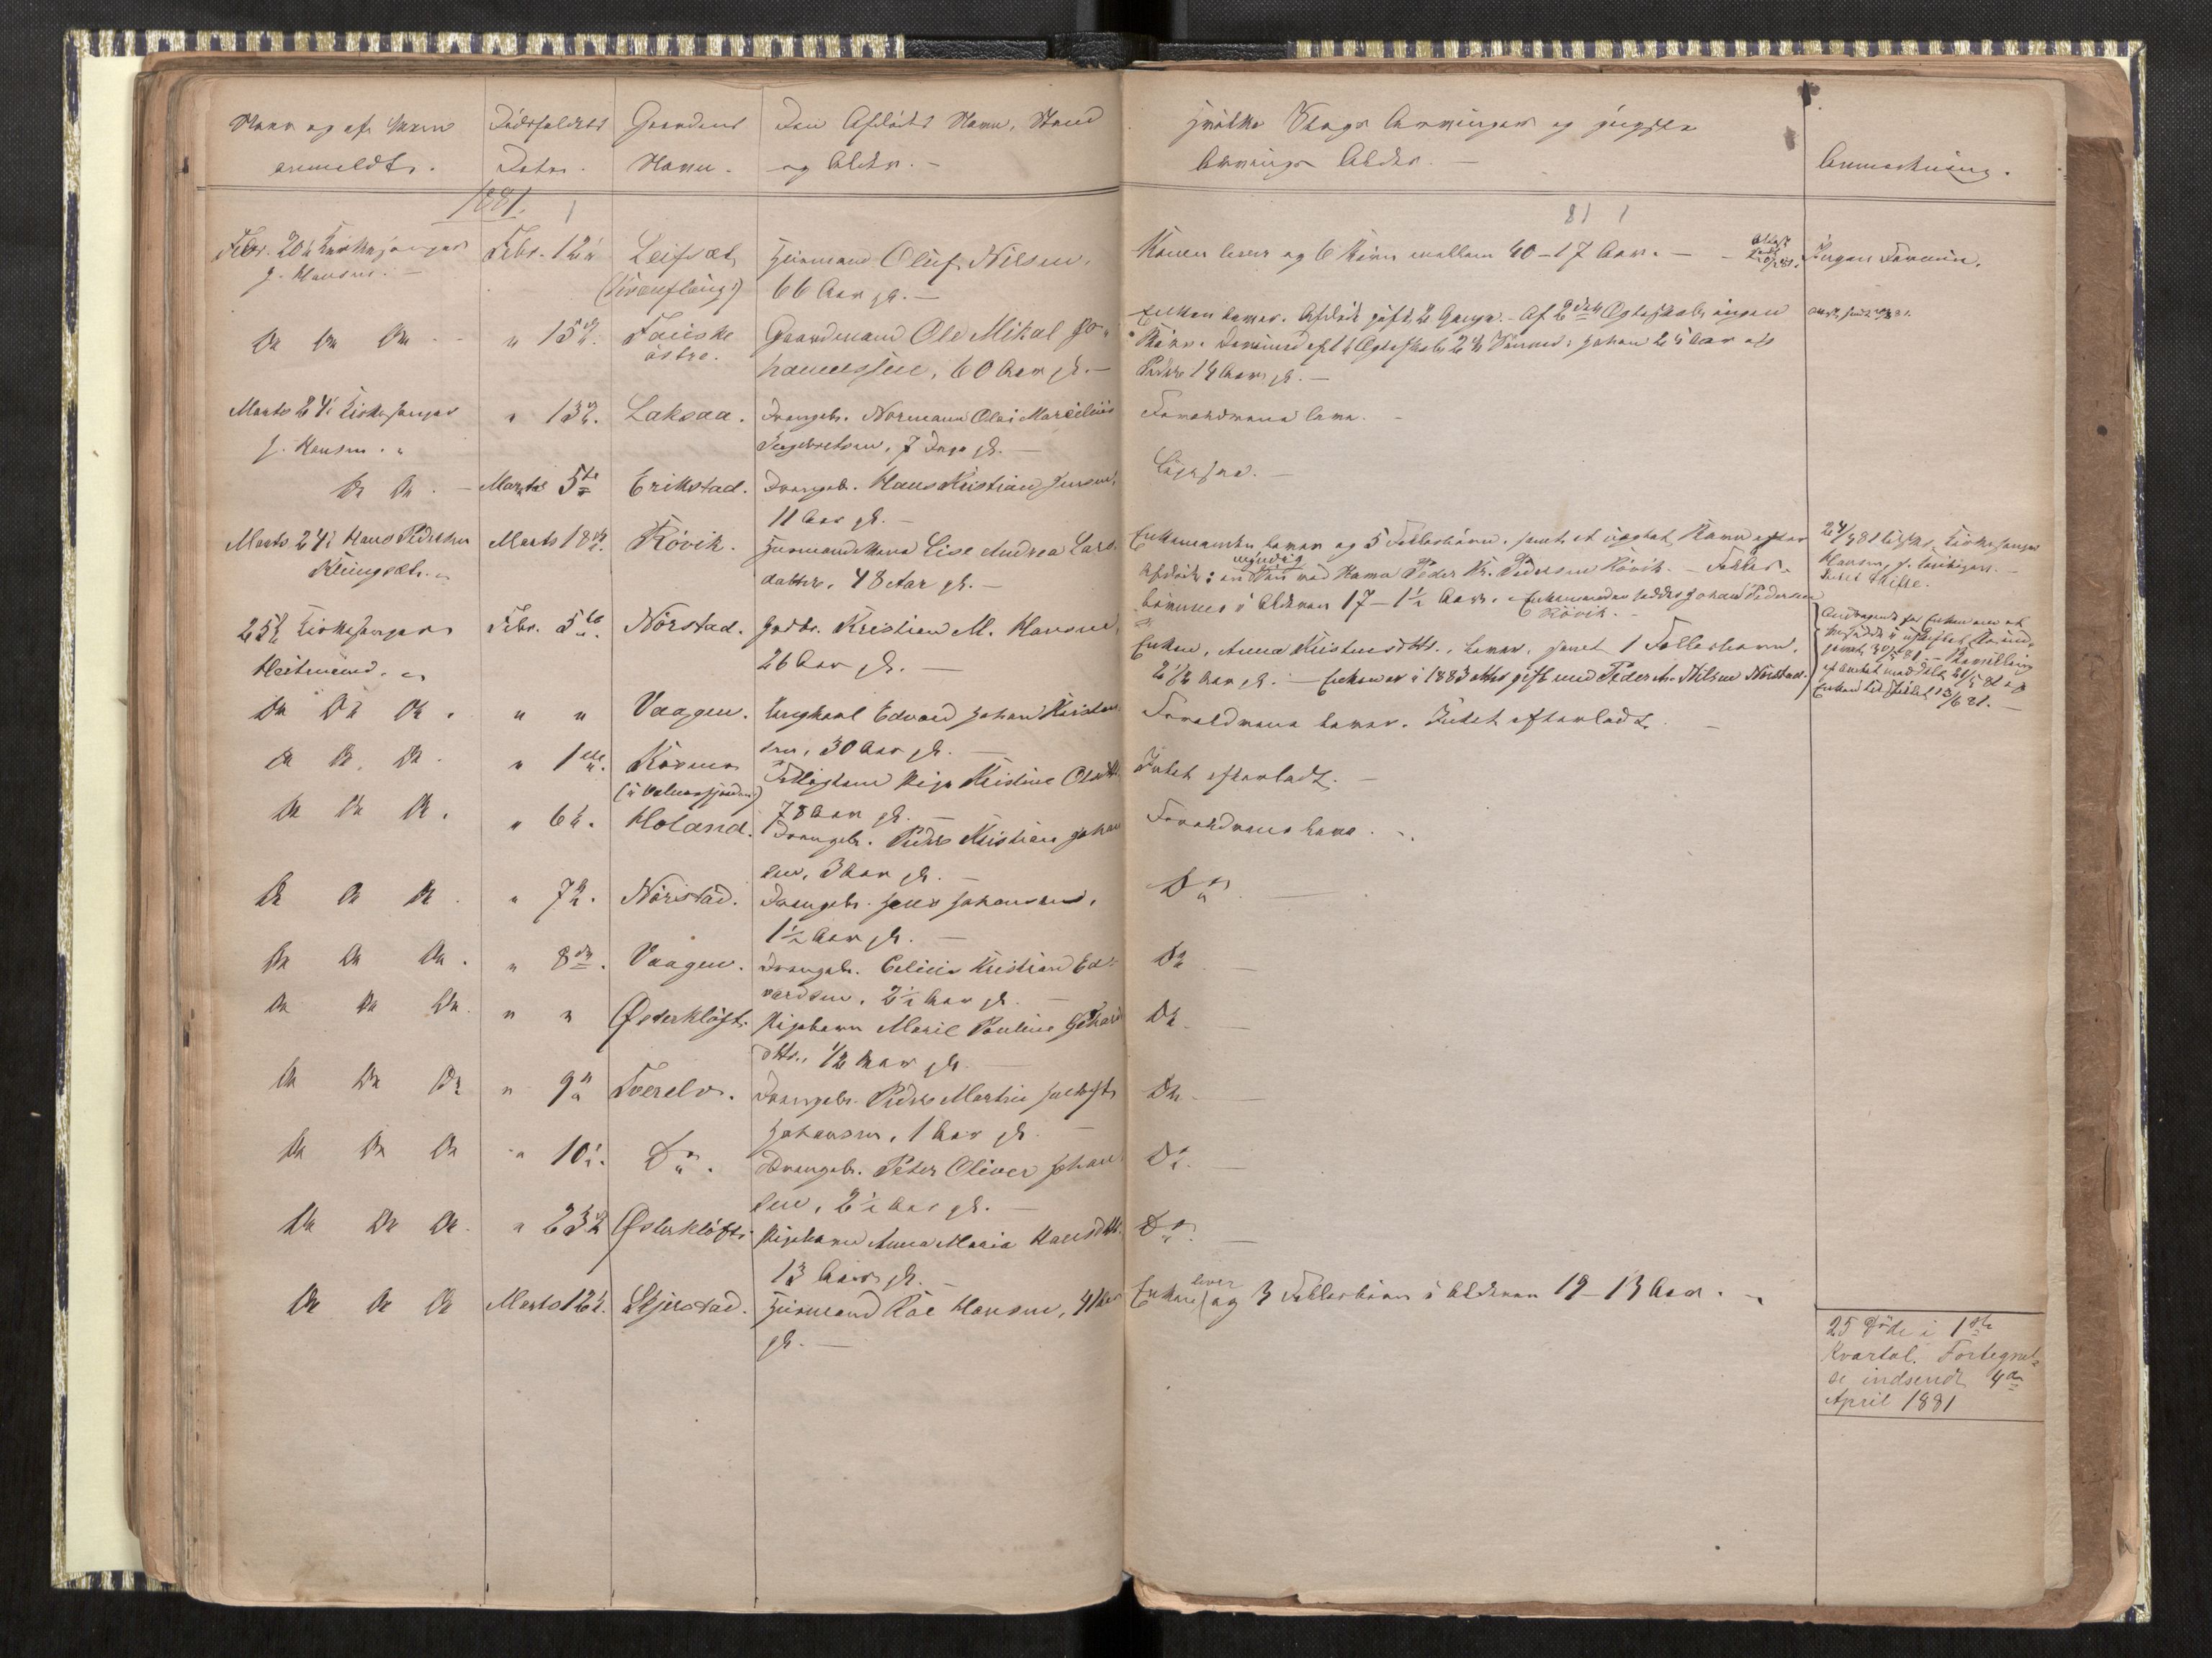 Naar og af hvem
anmeldt.
Dødsfaldets
Dato.
Gaardens
Navn.
Den Afdødes Navn, Stand
og Alder.
hvilke Slags Arvinger og yngste
Arvings Alder.
Anmerkning.
1881.
81
Febr. 20 Kirkesanger
J. Hansen.
Febr. 12
Leifset
Huusmand Oluf Nilsen,
66 Aar gl.
Konen lever og 6 Børn mellem 40-17 Aar.
Ingen Formue.
Do Do Do
" 15de.
Fauske
østre.
Gaardmand Ole Mikal Jo-
hannessen, 60 Aar gl.
Enken lever. Afdøde gift 2 Gange. Af 2det Ægteskab ingen
Børn. Derimod af 1ste Ægteskab 2 Sønner: Johan 25 Aar og
Peder 14 Aar gl.
Marts 24 Kirkesanger
J. Hansen. "
" 13de.
Laksaa.
Drengeb. Normann Olai Marcelius
Ingebretsen, 7 Dage gl.
Forældrene leve.
Do Do.
Marts 5te
Erikstad.
Drengeb. Hans Kristian Jensen,
11 Aar gl.
Ligesaa.
Marts 24 Hans Pedersen
Klungset. "
Marts 18de.
Røvik.
Huusmandskone Lise Andrea Lars-
datter, 48 Aar gl.
Enkemanden lever og 5 Fellesbørn, samt et uægte Barn efter
Afdøde: en myndig Søn ved Navn Peder Kr. Pedersen Røvik. Felles-
børnene i Alderen 17-1½ Aar. Enkemanden hedder Johan Pedersen
Røvik.
24/3 81 Kirkesanger
Hansen,
Intet Skifte.
25 Kirkesanger
Heitmand. "
Febr. 5te.
Nørstad.
Gaardbr. Kristian M. Hansen,
26 Aar gl.
Enken, Anna Kristensdtr., lever, samt 1 Fellesbarn,
2½ Aar gl. Enken er i 1883 atter gift med Peder A. Nilsen Nørstad.
Andragende fra Enken om at
hensidde i uskiftet Bo ind-
sendt 30/3 81. Bevilling
af Amtet meddelt 21/5 81 og
Enken tilstillet 13/6 81.
Do Do Do.
" "
Vaagen.
Ungkarl Edvard Johan Kristen-
sen, 30 Aar gl.
Forældrene lever. Intet efterladt.
Do Do. Do.
" 1ste.
Kosmo
(i Valnesfjorden)
Fattiglem Pige Kristine Olsdtr.
78 Aar gl.
Intet efterladt.
Do Do Do.
" 6te.
Holand.
Drengeb. Peder Kristian Johan-
sen, 3 Aar gl.
Forældrene leve.
Do Do Do.
" 7de.
Nørstad.
Drengeb. Jens Johansen,
1½ Aar gl.
Do
Do Do Do.
" 8de.
Vaagen.
Drengeb. Celius Kristian Ed-
vardsen, 2½ Aar gl.
Do
Do Do Do.
" "
Østerkløft.
Pigebarn Marie Pauline
dtr., ½ Aar gl.
Do.
Do Do Do
" 9de
Tverelv.
Drengeb. Peder Martin
Johansen, 1 Aar gl.
Do
Do Do Do
" 10de.
Do.
Drengeb. Peter Oliver Johan-
sen, 2½ Aar gl.
Do.
Do Do Do.
" 23de
Østerkløft.
Pigebarn Anna Maria Hansdtr.
13 Aar gl.
Do.
Do Do Do
Marts 12te.
Skjerstad.
Huusmand Roe Hansen, 41 Aar
gl.
Enken lever og 3 Fellesbørn i Alderen 19-13 Aar.
25 Døde i 1ste
Kvartal. Fortegnel-
se indsendt 4de
April 1881